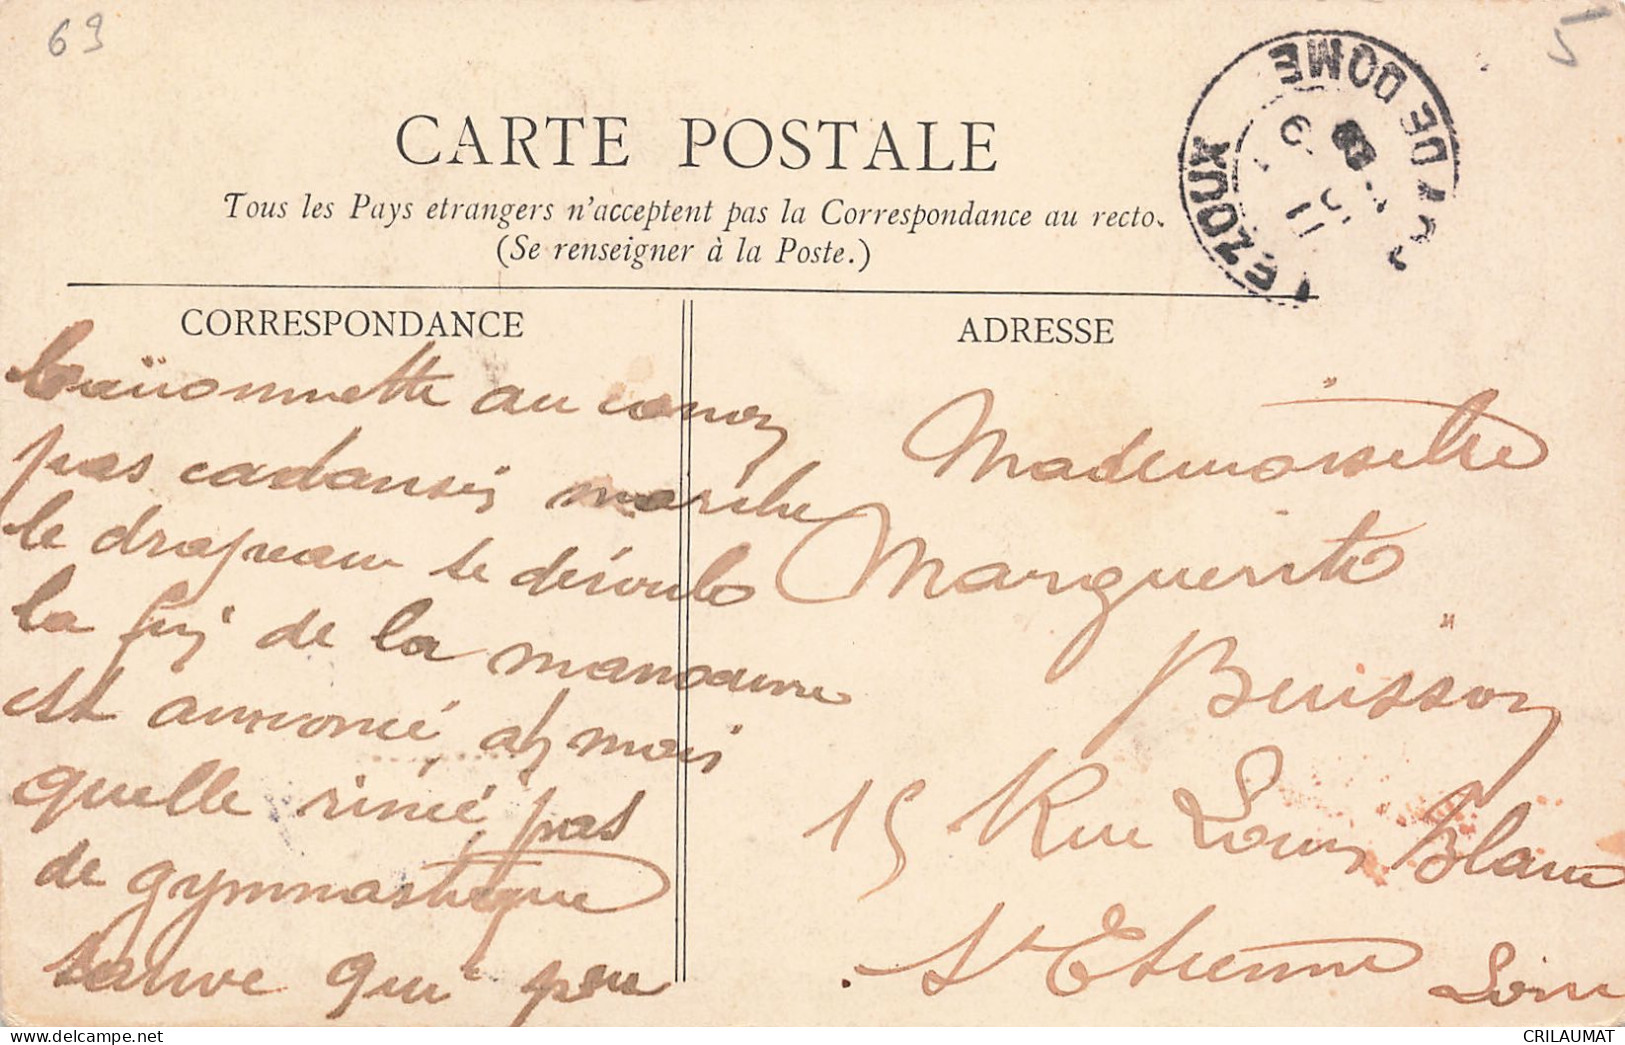 63
5
LEZOUX PUY DE DOME
CARTE POSTALE
Tous les Pays etrangers n'acceptent pas la Correspondance au recto.
(Se renseigner à la Poste.)
CORRESPONDANCE
ADRESSE
baïonnette au canon
pas cadansés marche
le drapeau se déroule
la fin de la manœuvre
est annoncé, ah mais
quelle rincé, pas
de gymnastique
sauve qui peu
Mademoiselle
Marguerite
Buisson
15 Rue Louis Blanc
St Etienne Loire
CRILAUMAT